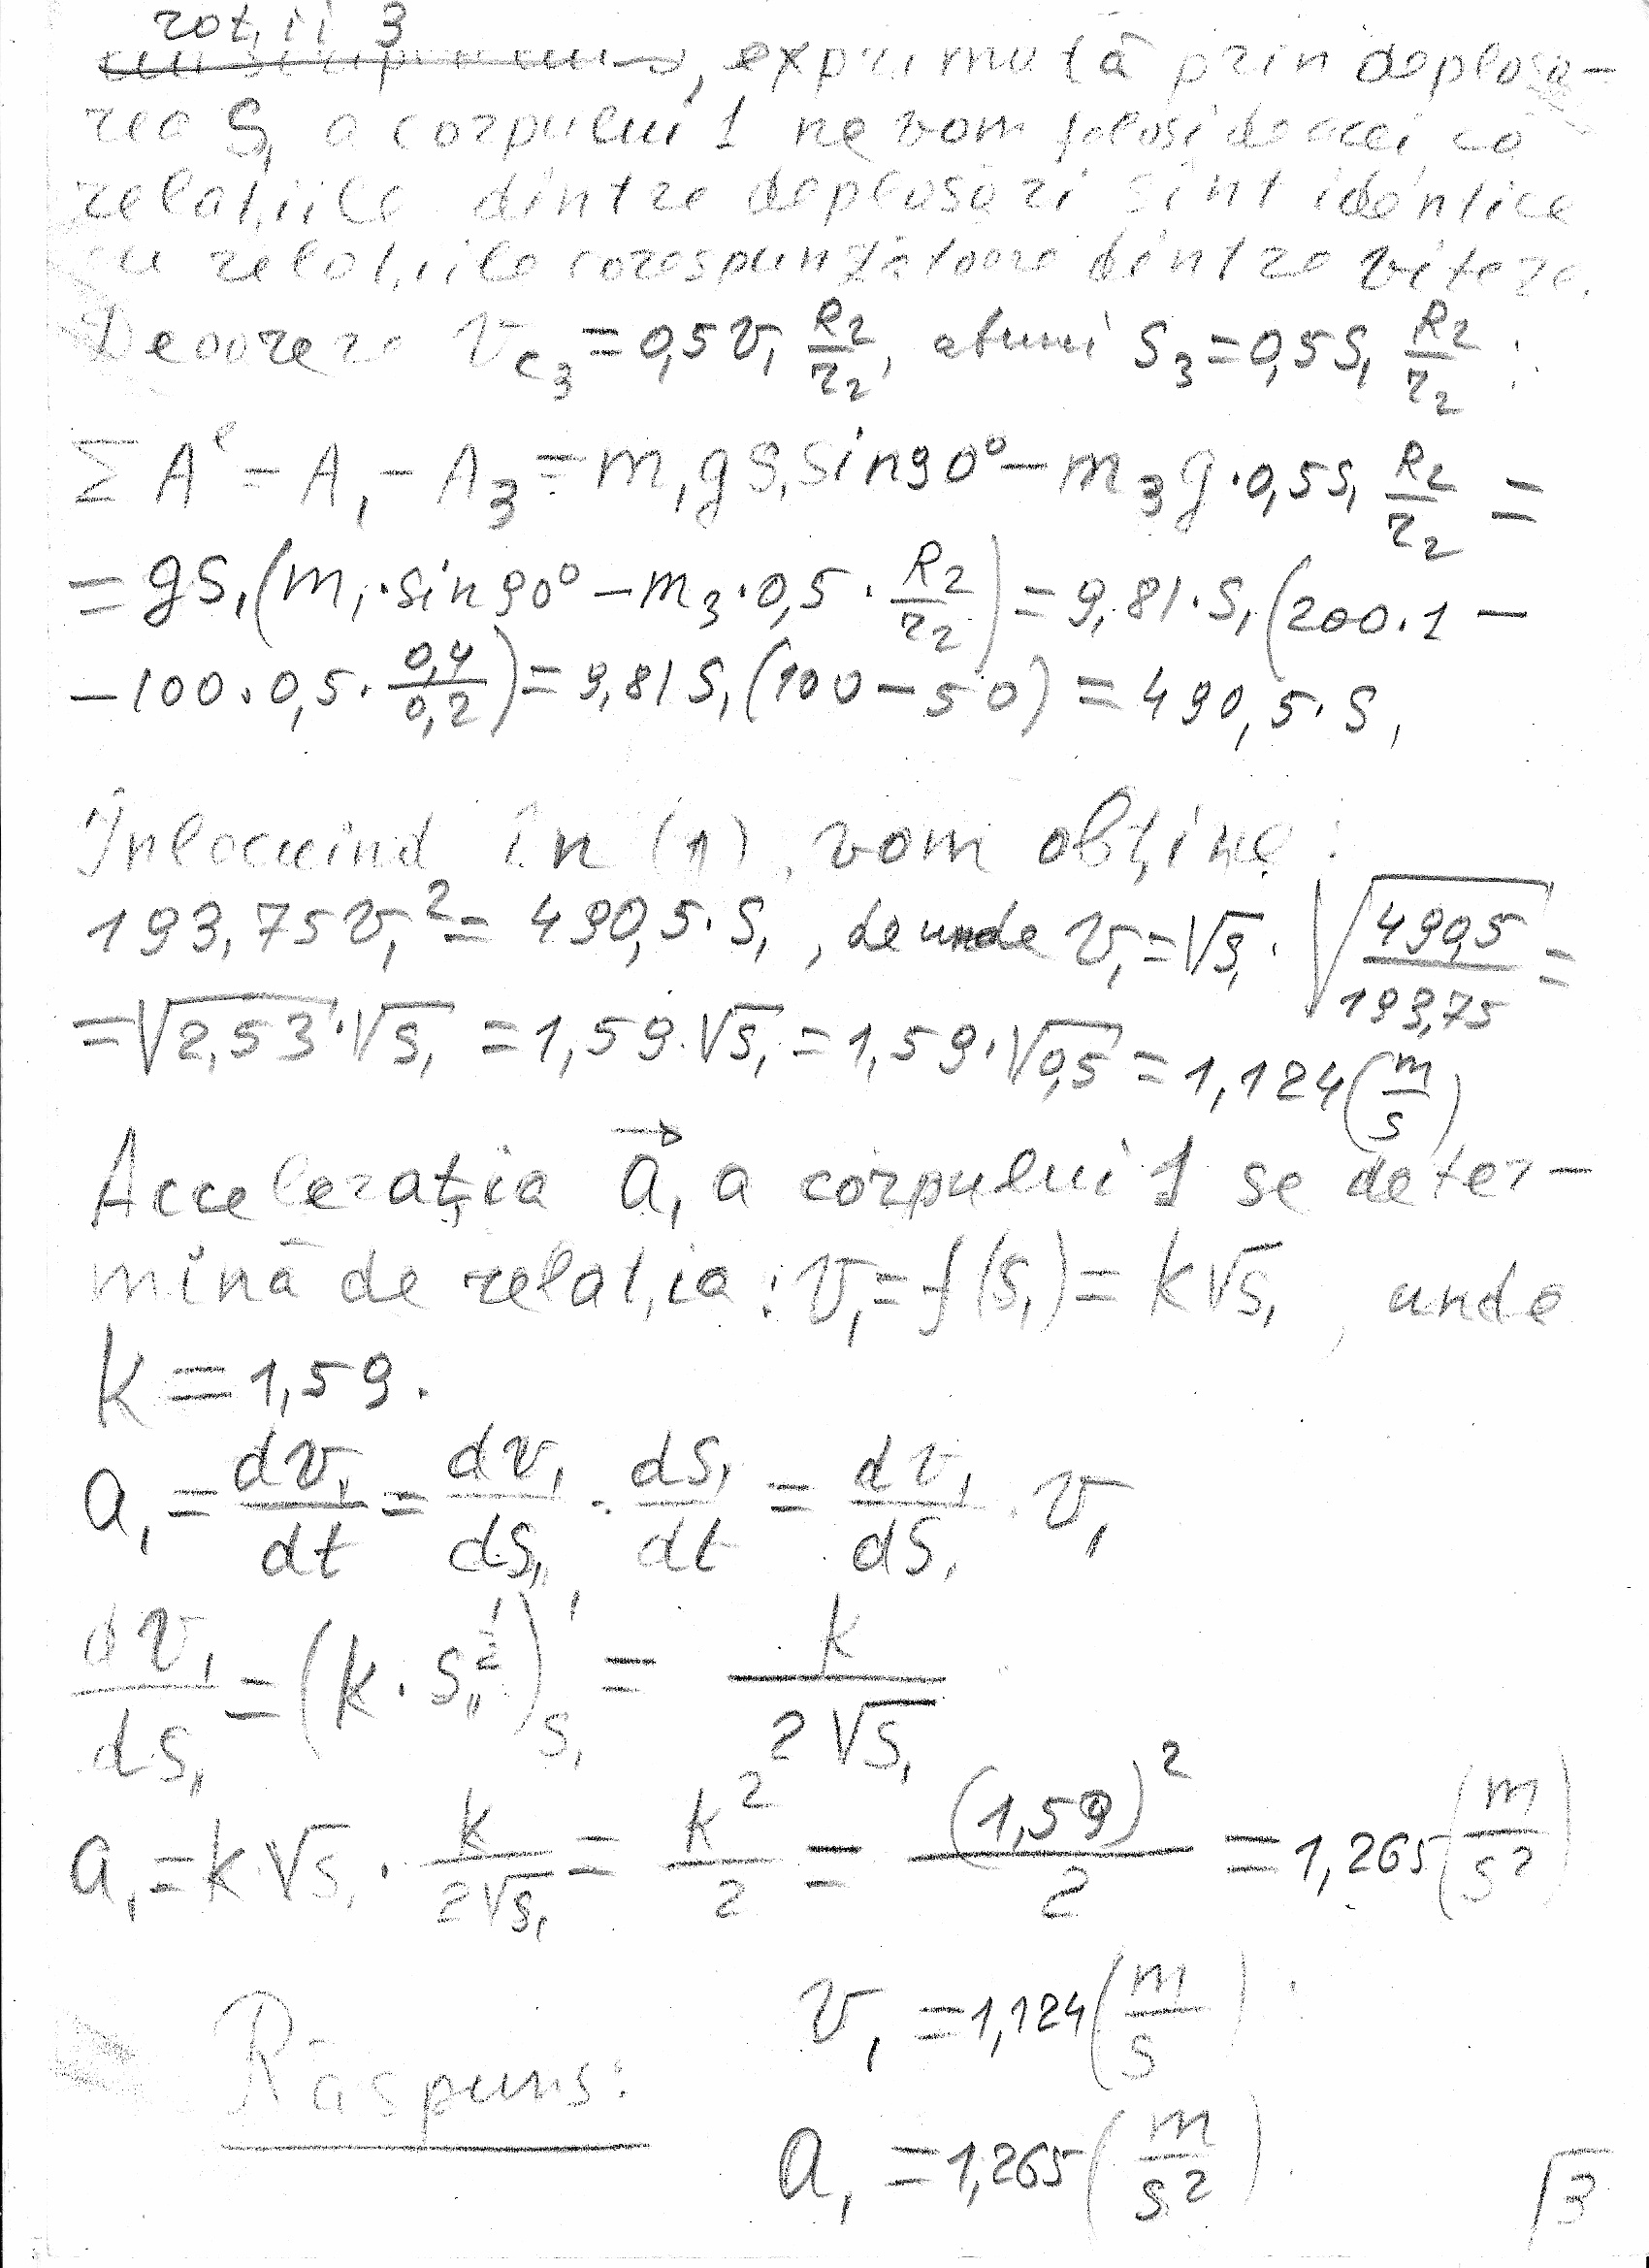 roții 3
, exprimată prin deplasa-
rea S₁ a corpului 1 ne vom folosi de acei, că
relațiile dintre deplasări sînt identice
cu relațiile corespunzătoare dintre viteze.
Deoarece v_{c3} = 0,5 v₁ R₂/r₂, atunci S₃ = 0,5 S₁ R₂/r₂ :
Σ Aᵉ = A₁ - A₃ = m₁ g S₁ sin 90° - m₃ g · 0,5 S₁ R₂/r₂ =
= g S₁ (m₁ · sin 90° - m₃ · 0,5 · R₂/r₂) = 9,81 · S₁ (200 · 1 -
- 100 · 0,5 · 0,4/0,2) = 9,81 S₁ (100 - 50) = 490,5 · S₁
Înlocuind în (1), vom obține :
193,75 v₁² = 490,5 · S₁ , de unde v₁ = √S₁ · √(490,5/193,75) =
= √2,53 · √S₁ = 1,59 · √S₁ = 1,59 · √0,5 = 1,124 (m/s)
Accelerația a⃗₁ a corpului 1 se deter-
mină de relația : v₁ = f(S₁) = k√S₁ , unde
k = 1,59.
a₁ = dv₁/dt = dv₁/dS₁ · dS₁/dt = dv₁/dS₁ · v₁
dv₁/dS₁ = (k · S₁^{1/2})'_{S₁} = k/(2√S₁)
a₁ = k√S₁ · k/(2√S₁) = k²/2 = (1,59)²/2 = 1,265 (m/s²)
Răspuns: v₁ = 1,124 (m/s)
a₁ = 1,265 (m/s²)
3